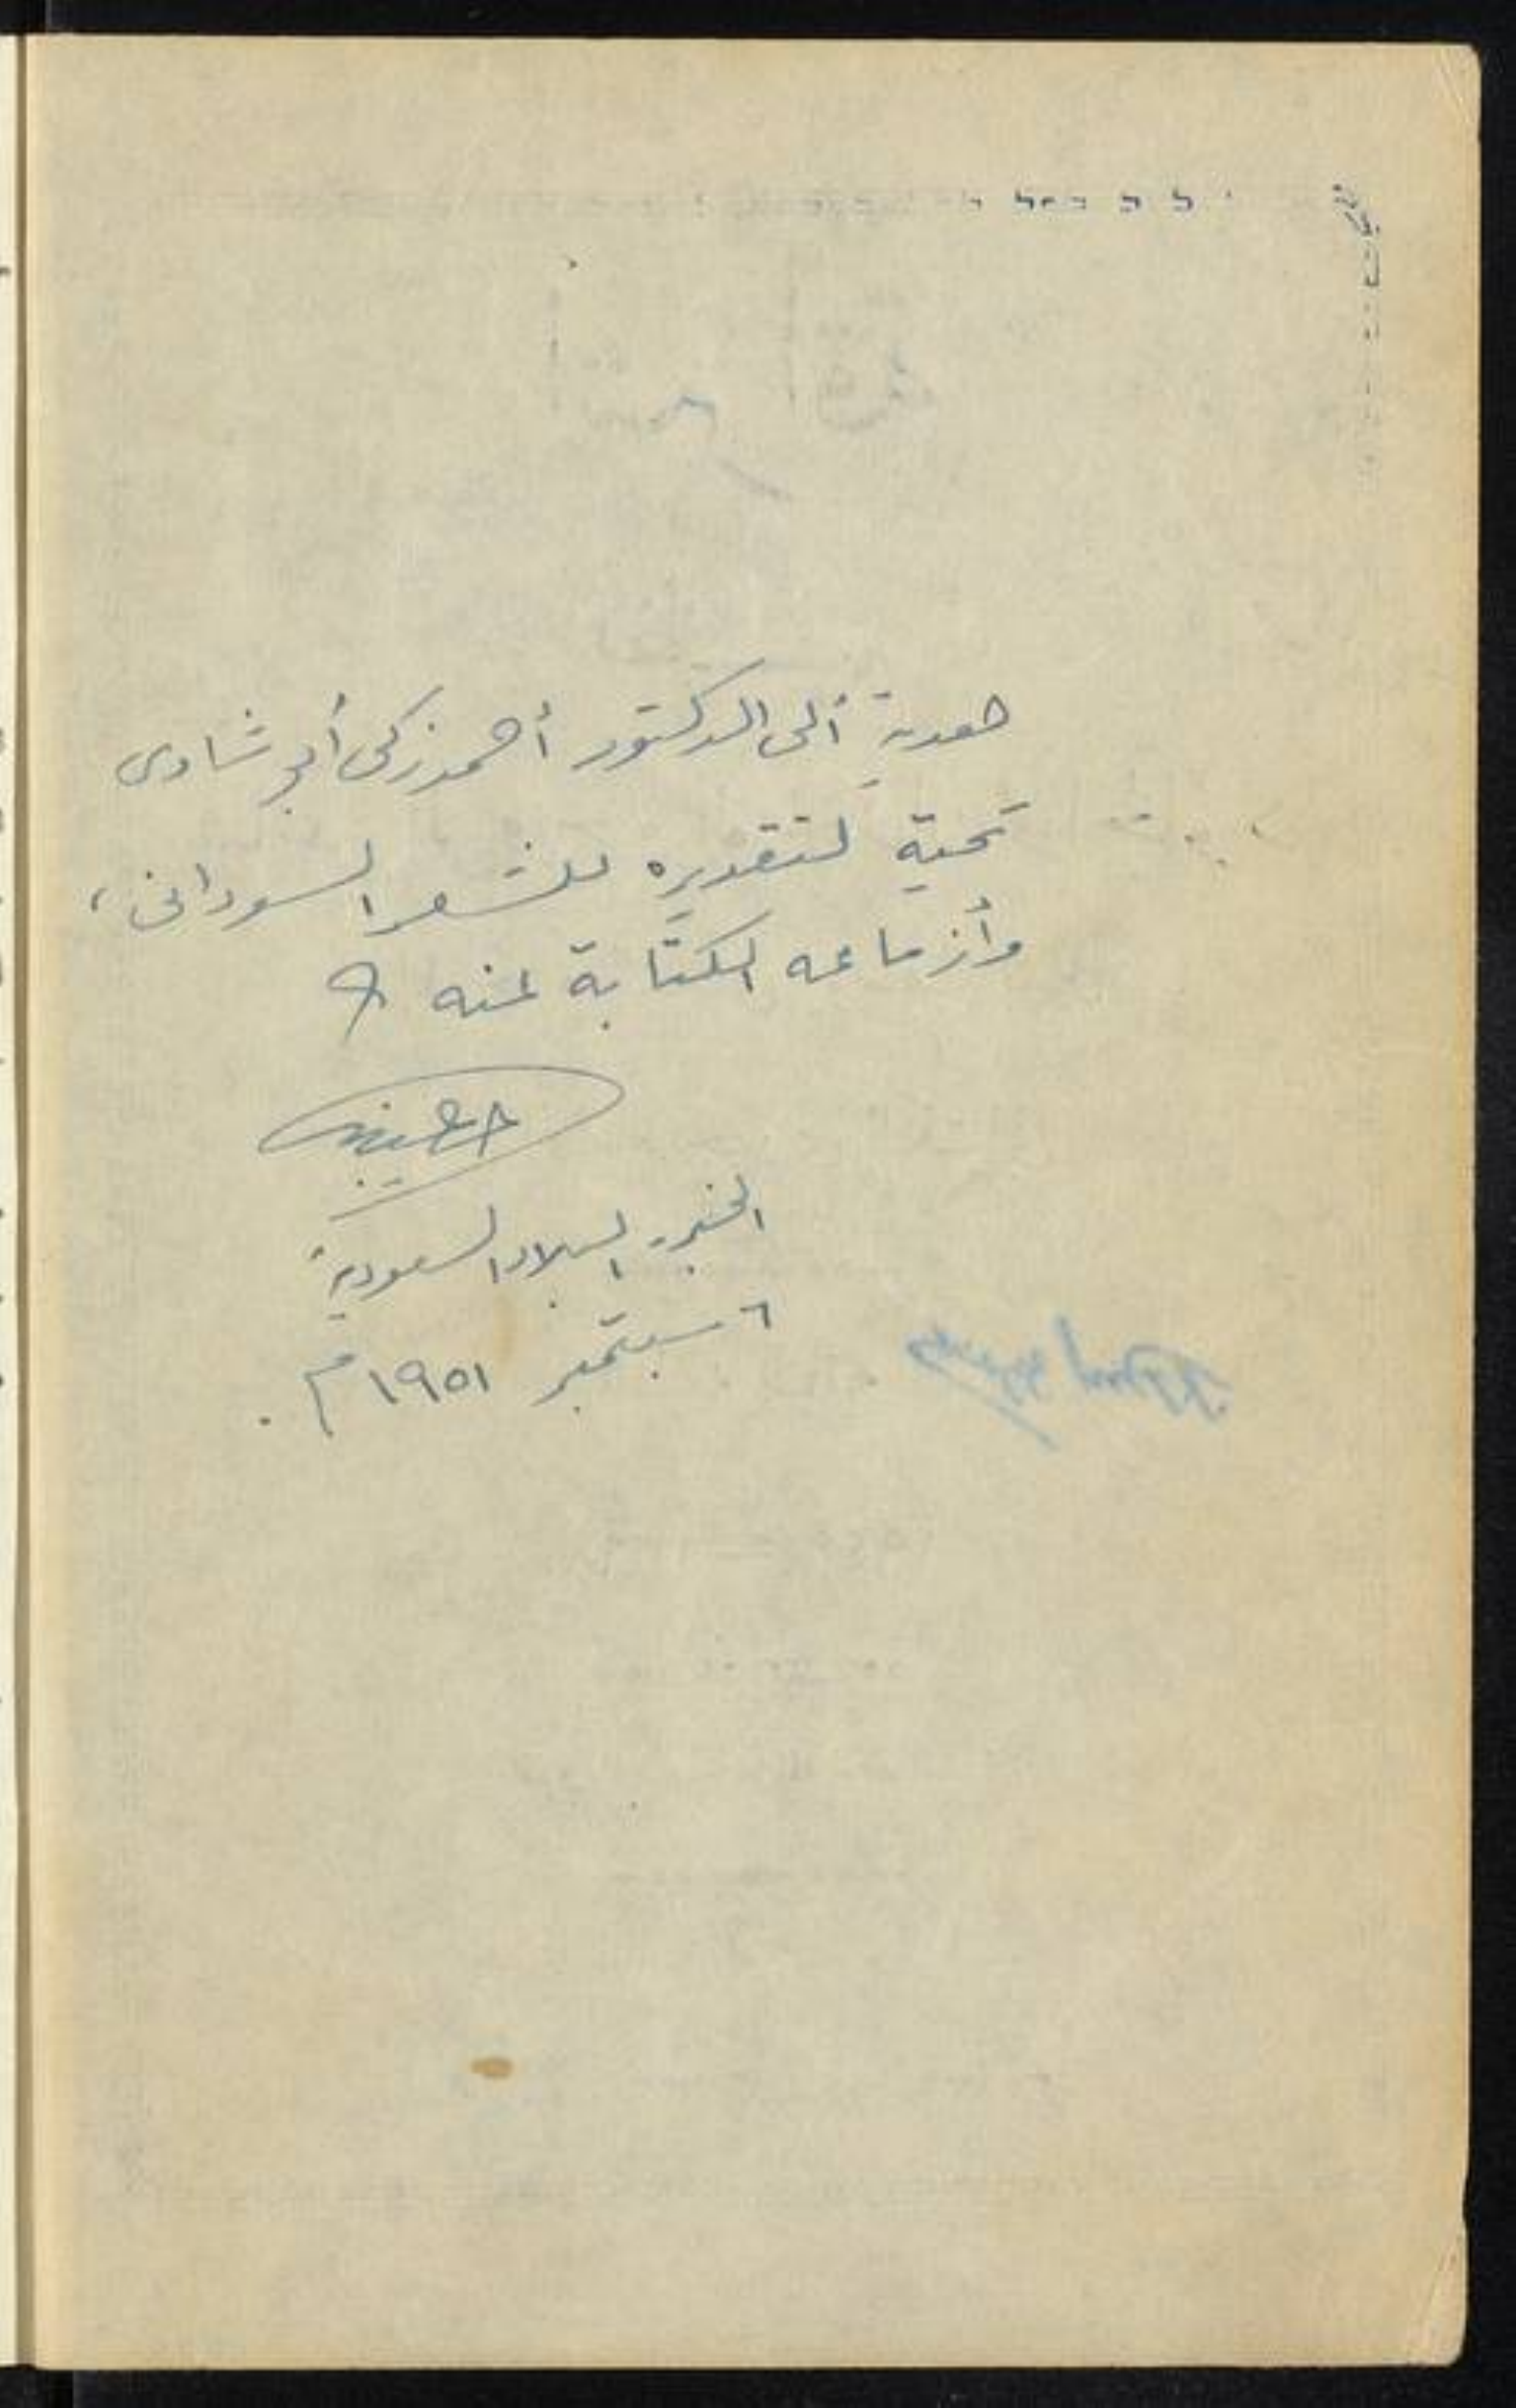 هدية ألى الدكتور أحمد زكى أبو شادى
تحية لتقديره للشعر السودانى ،
وأزماعه الكتابة عنه
الخبر - البلاد السعودية
٦ سبتمبر ١٩٥١ م .